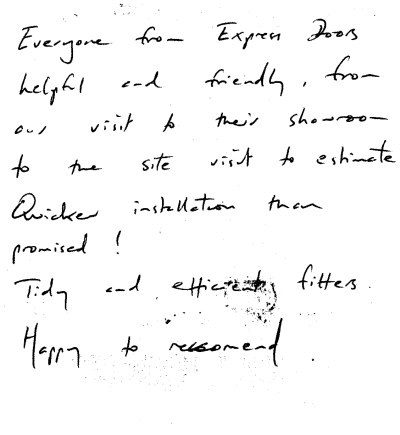 Everyone from Express Doors
helpful and friendly, from
our visit to their showroom
to the site visit to estimate
Quicker installation than
promised!
Tidy and efficient fitters.
Happy to recomend.